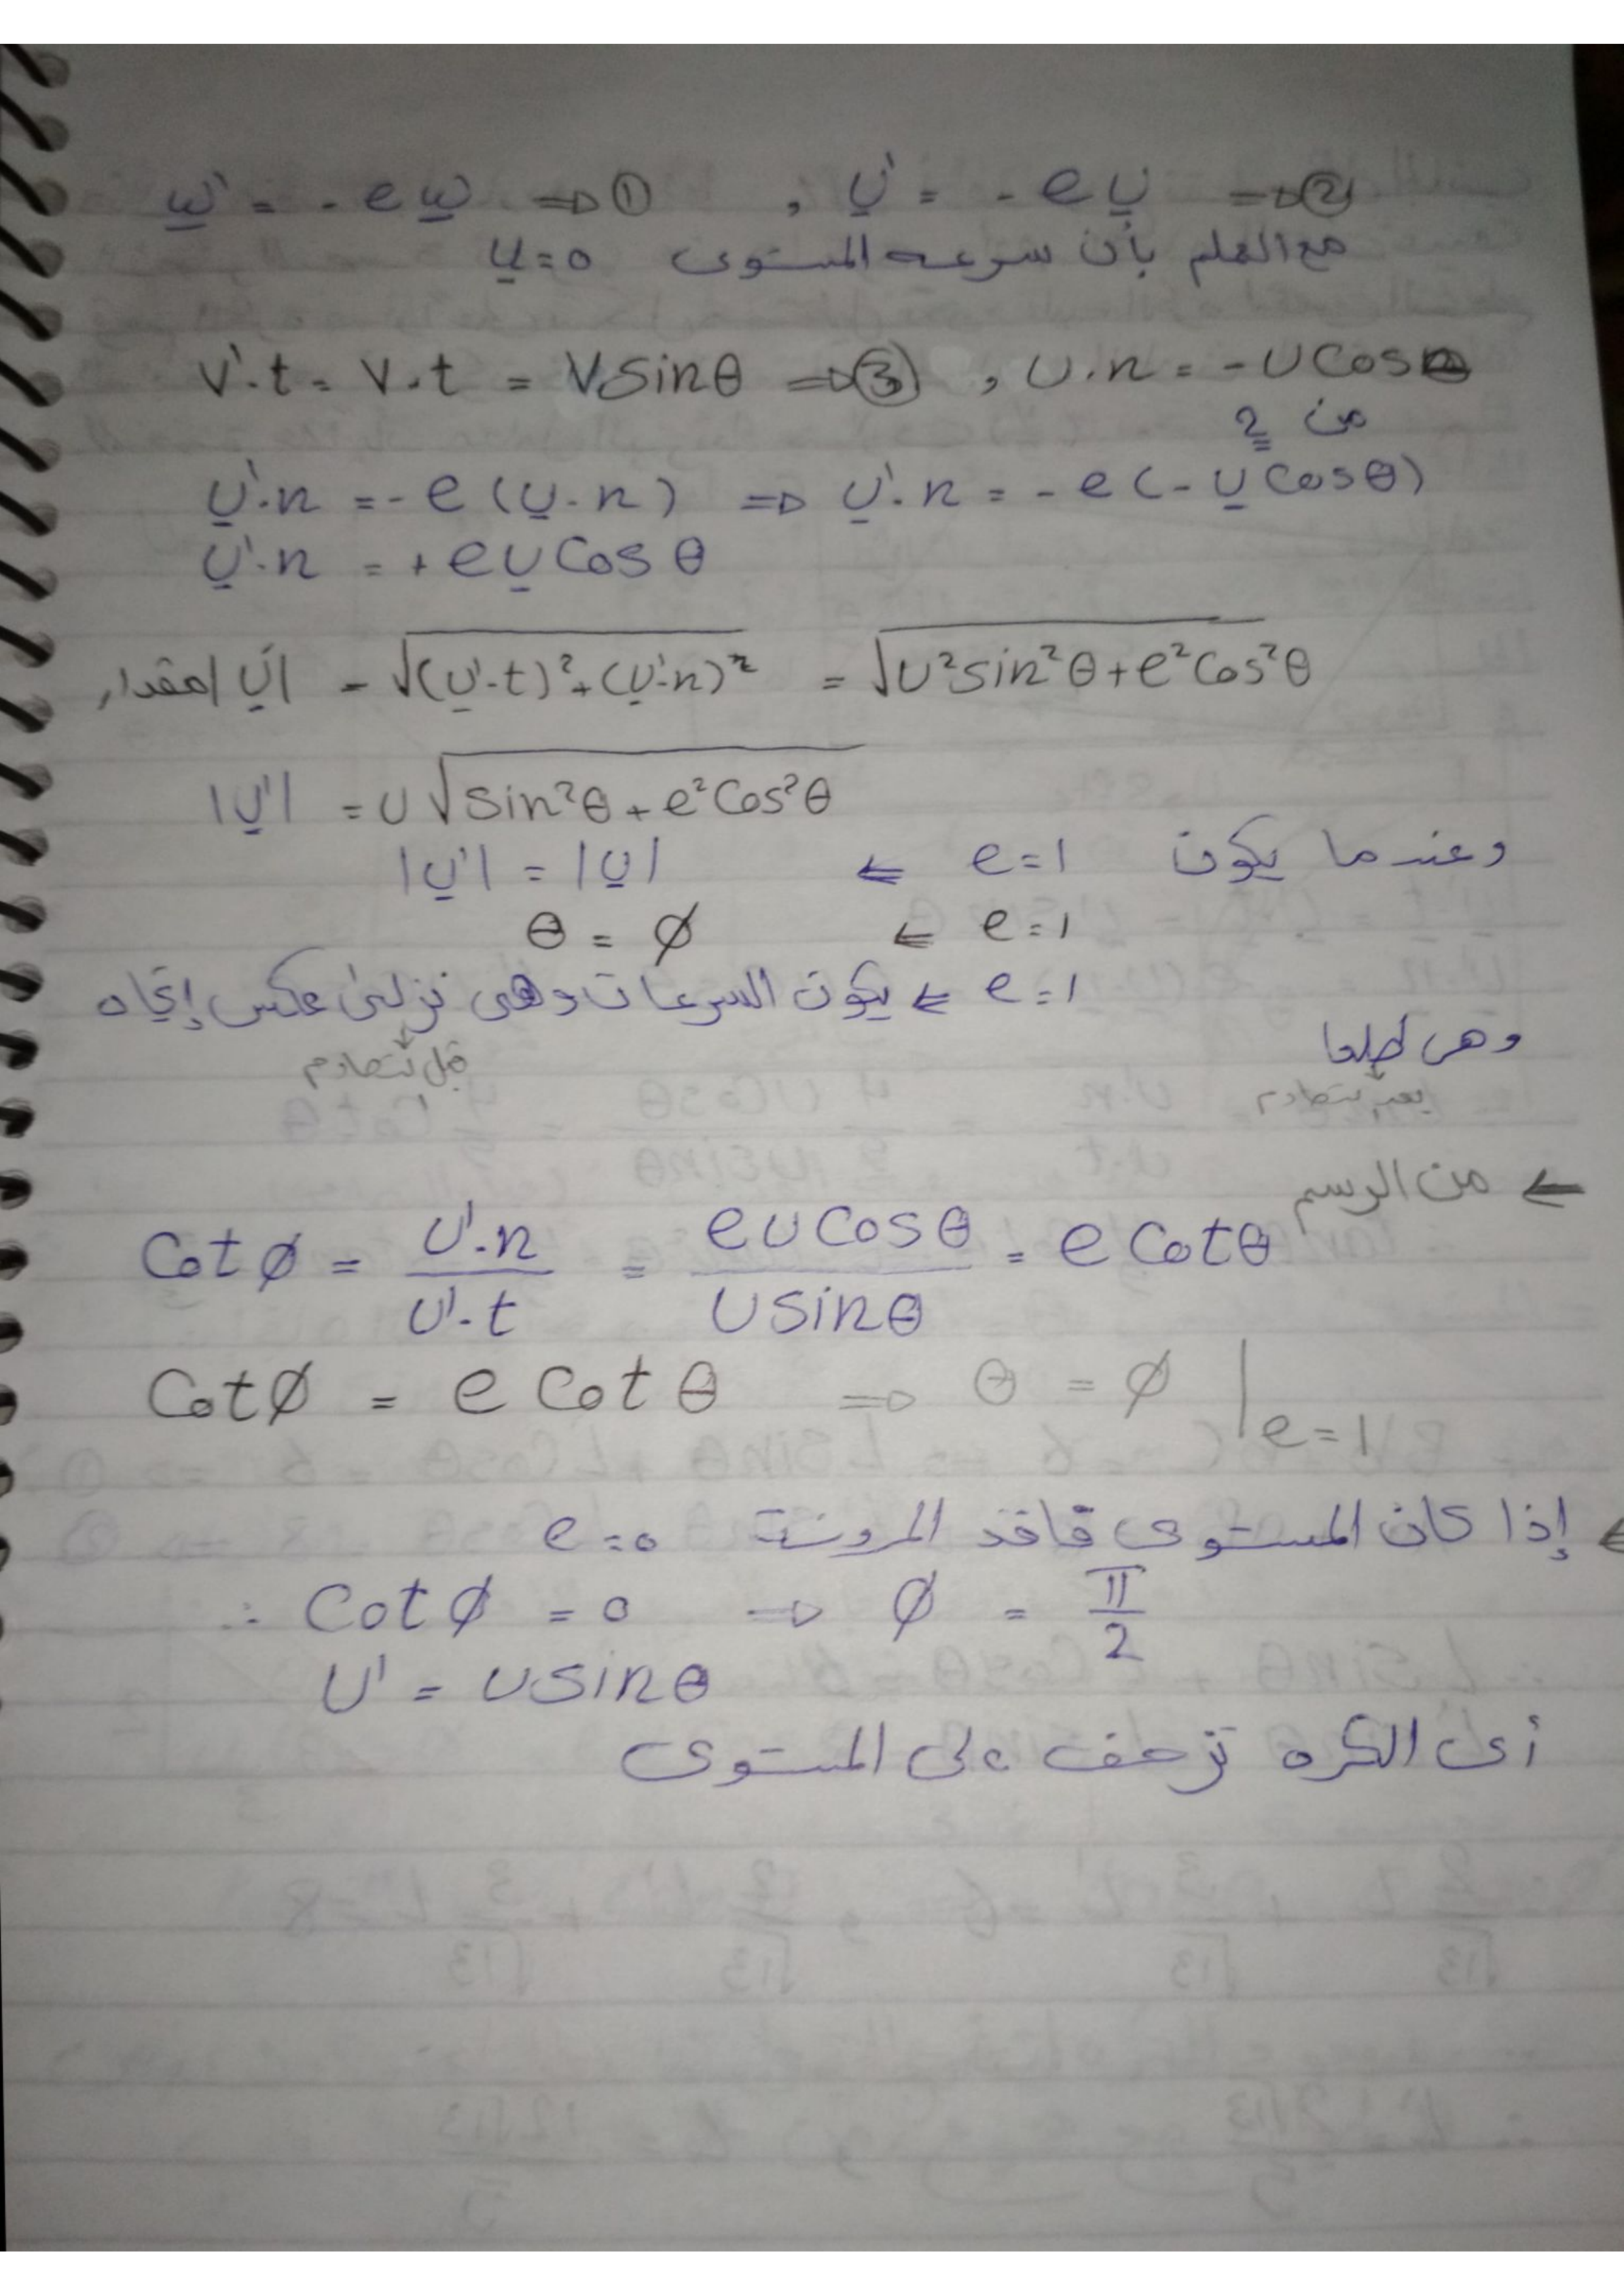 ω' = - e ω ⇒ ① , U' = - e U ⇒ ②
مع العلم بأن سرعه المستوى u = 0
V'.t = V.t = V sin θ ⇒ ③ , U.n = - U cos θ
من 2
U'.n = - e (U.n) ⇒ U'.n = - e (- U cos θ)
U'.n = + e U cos θ
المقدار |U'| = √(U'.t)² + (U'.n)² = √U² sin² θ + e² cos² θ
|U'| = U √sin² θ + e² cos² θ
وعندما يكون e = 1 ⇐ |U'| = |U|
e = 1 ⇐ θ = ϕ
e = 1 ⇐ يكون السرعات وهى نزلى عكس إتجاه
قبل تصادم
وهى طلعا
بعد تصادم
⇐ من الرسم
Cot ϕ = U'.n / U'.t = e U cos θ / U sin θ = e Cot θ
Cot ϕ = e Cot θ ⇒ θ = ϕ | e = 1
⇐ إذا كان المستوى فاقد المرونة e = 0
∴ Cot ϕ = 0 ⇒ ϕ = π / 2
U' = U sin θ
أى الكره تزحف على المستوى